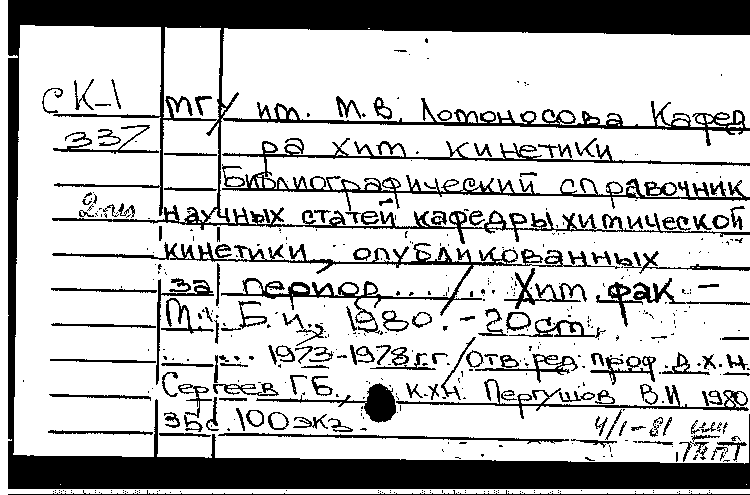 СК-1 МГУ им. М.В. Ломоносова. Кафед
337 ра хим. кинетики
Библиографический справочник
научных статей кафедры химической
кинетики, опубликованных
за период ... / ... Хим. фак -
М.: Б.и., 1980. - 20 см.
... ... 1973-1978 г.г. / Отв. ред. проф. д.х.н.
Сергеев Г.Б., к.х.н. Пергушов В.И. 1980
35с. 100 экз. 4/1-81